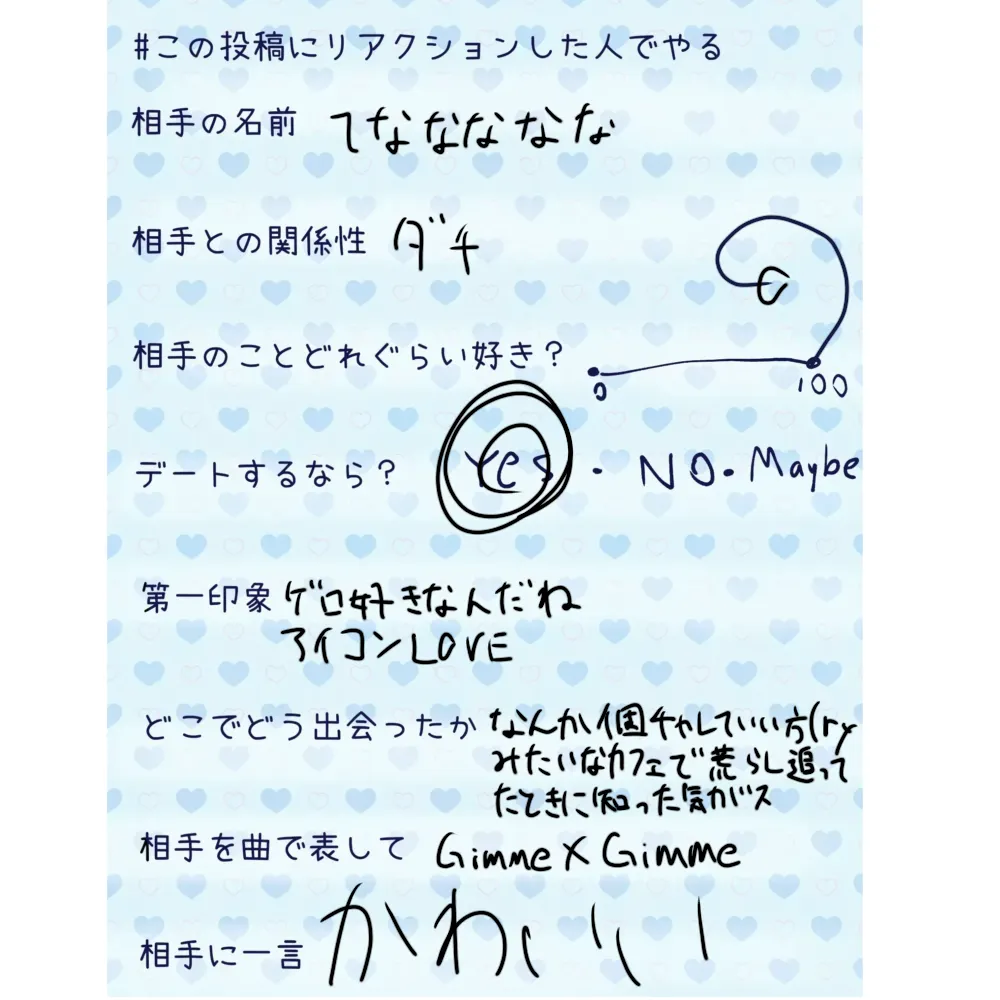 #この投稿にリアクションした人でやる
相手の名前 てななななな
相手との関係性 ダチ
相手のことどれぐらい好き？ 0 100
デートするなら？ Yes・NO・Maybe
第一印象 ゲロ好きなんだね
アイコンLOVE
どこでどう出会ったか なんか個チャしていい方(ry
みたいなカフェで荒らし追って
たときに知った気がス
相手を曲で表して Gimme×Gimme
相手に一言 かわいい